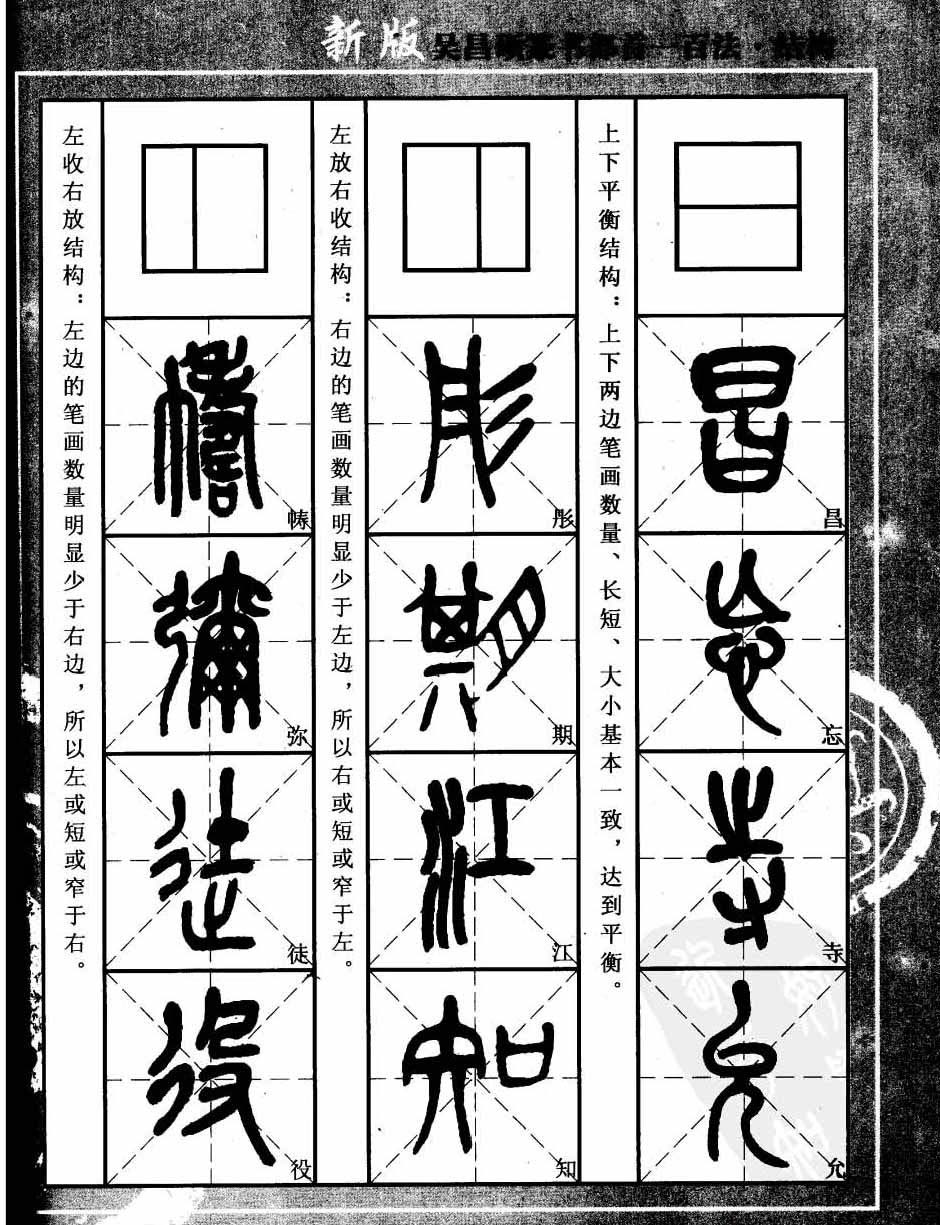 新版 吴昌硕篆书部首一百法·结构
上下平衡结构：上下两边笔画数量、长短、大小基本一致，达到平衡。
昌
忘
寺
允
左放右收结构：右边的笔画数量明显少于左边，所以右或短或窄于左。
彤
期
江
知
左收右放结构：左边的笔画数量明显少于右边，所以左或短或窄于右。
帱
弥
徒
役